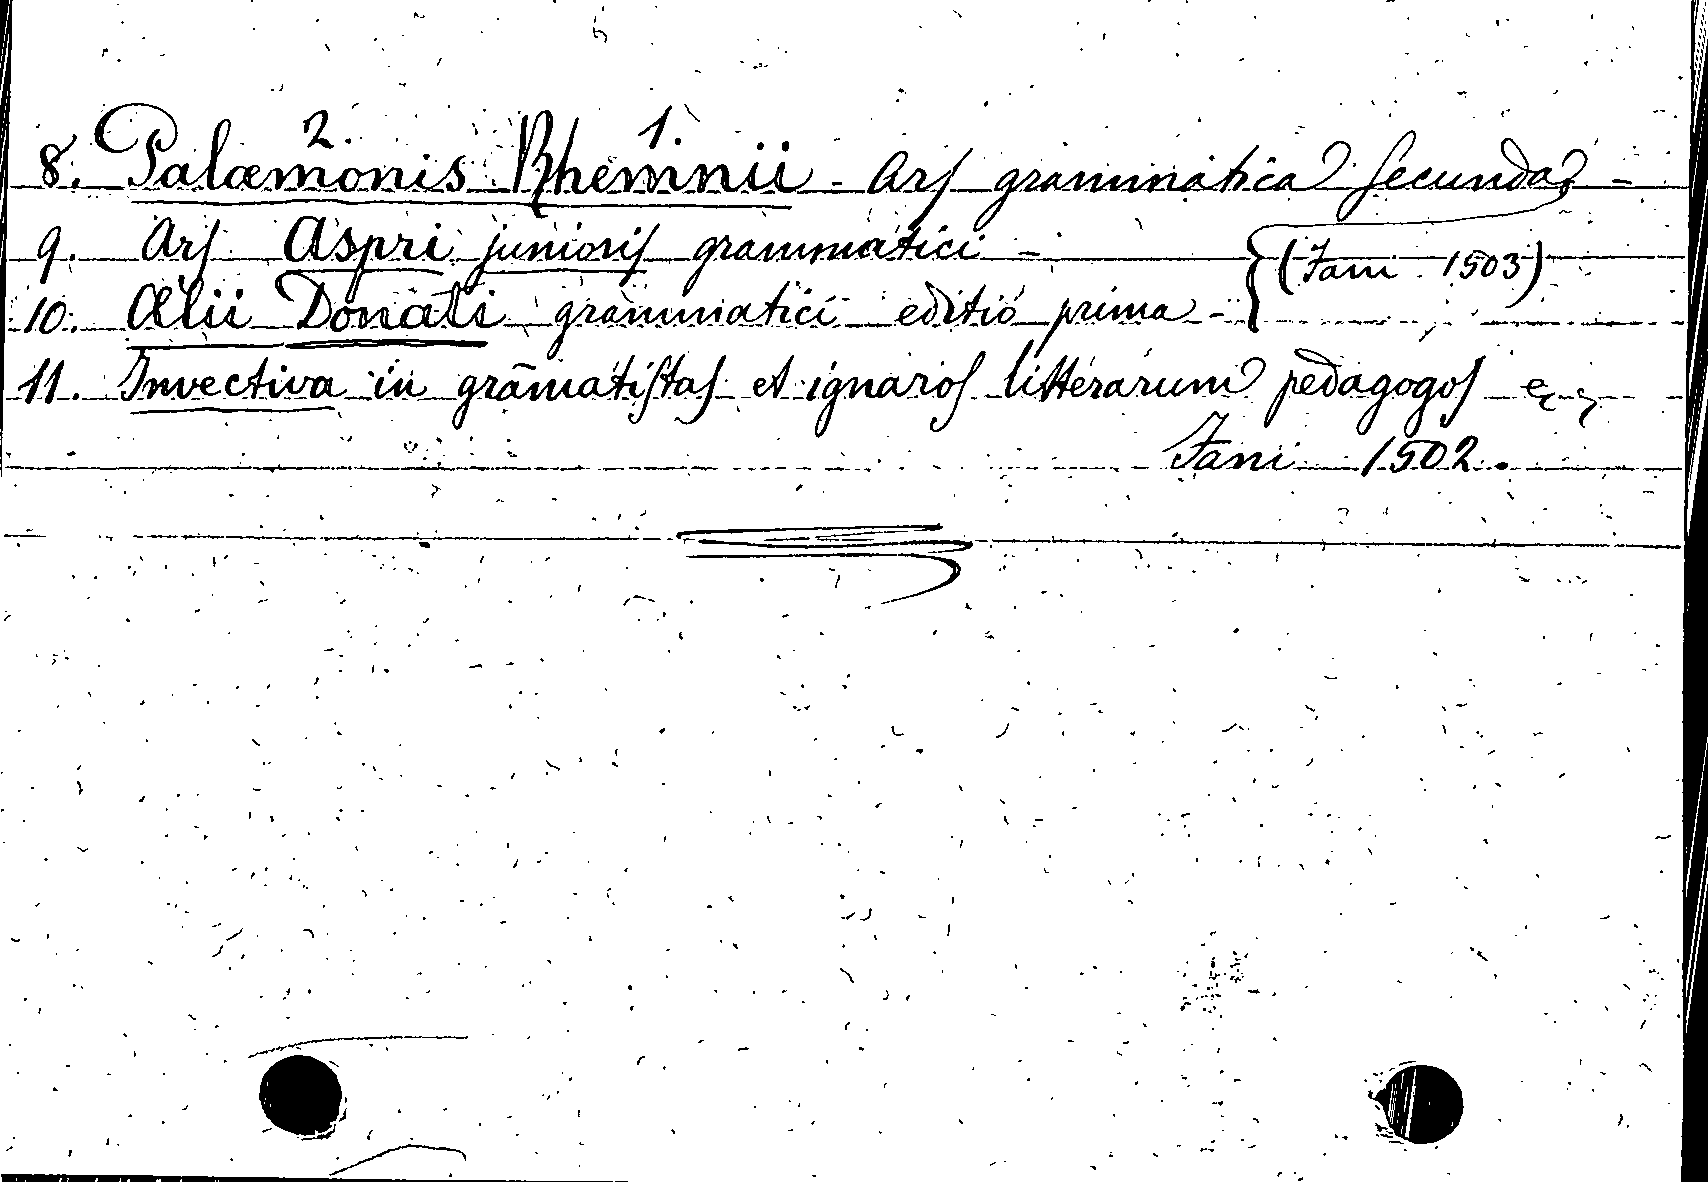 2. 1.
8. Palæmonis Rhemnii - Ars grammatica secunda -
9. Ars Aspri junioris grammatici - (Fani 1503)
10. Ælii Donati grammatici editio prima -
11. Invectiva in grãmatistas et ignaros litterarum pedagogos
Fani 1502.